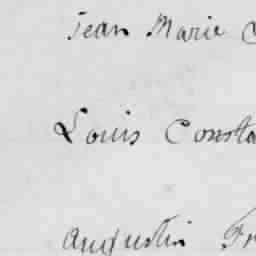 Jean Marie C
Louis Consta
Augustin Fr